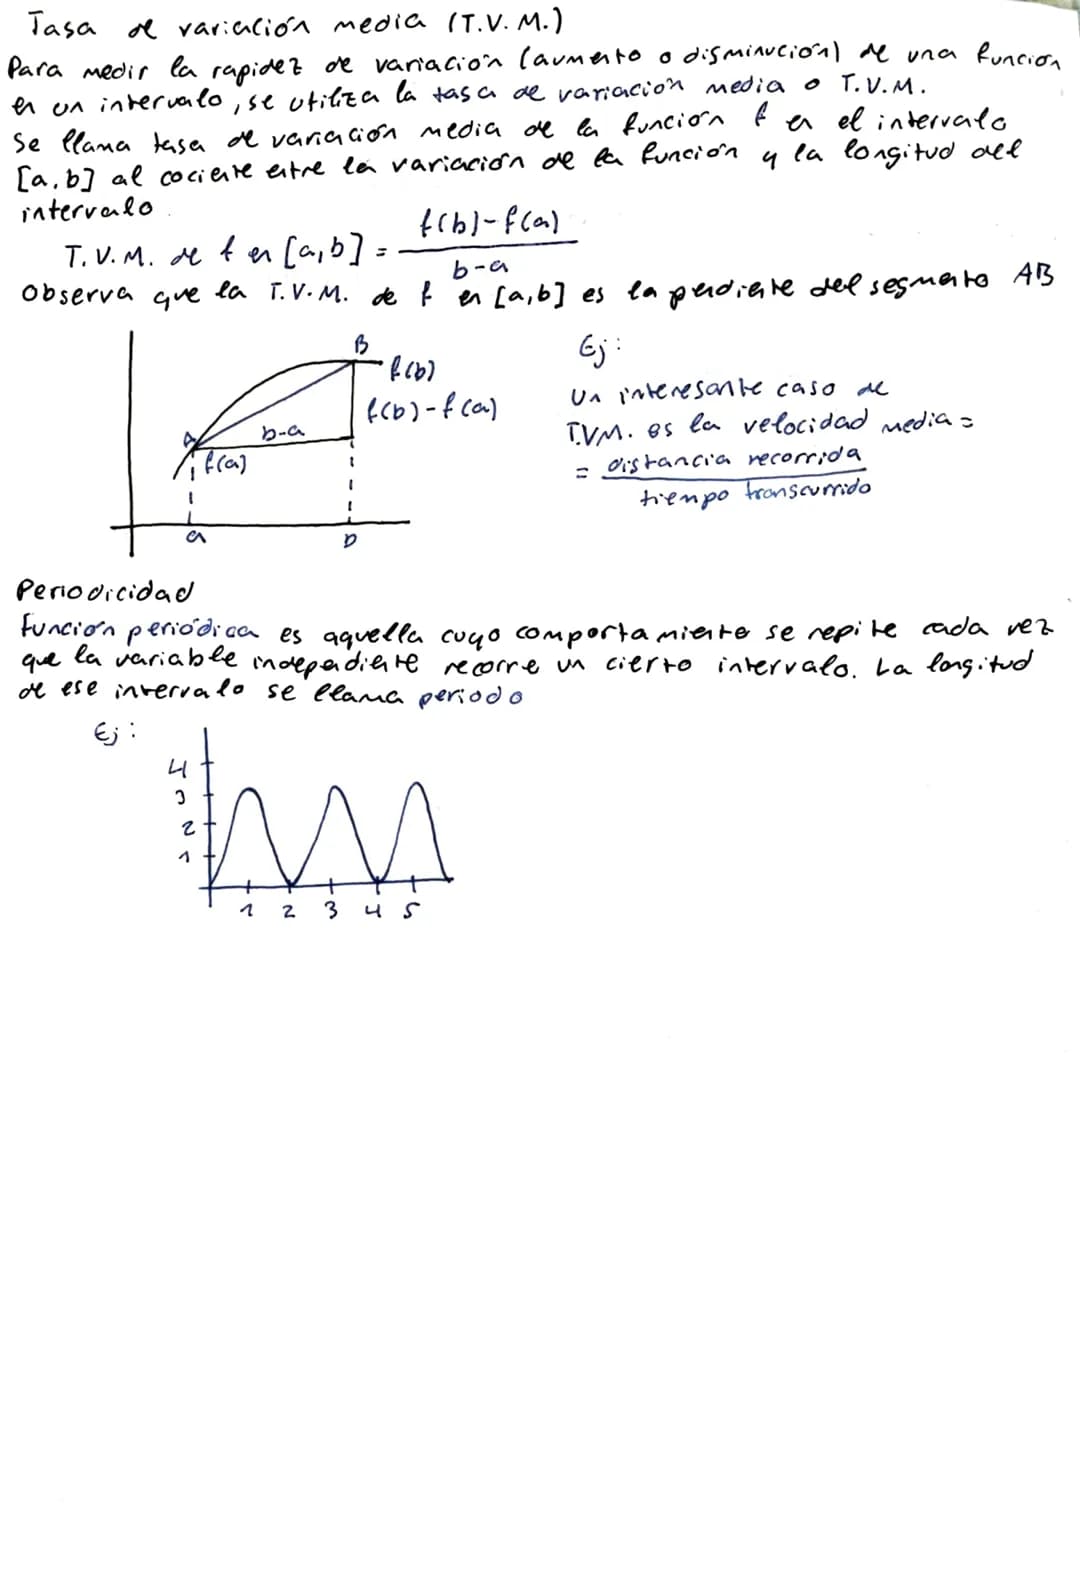 Tasa de variación media (T.V.M.)
Para medir la rapidez de variación (aumento o disminución) de una función
en un intervalo, se utiliza la tasa de variación media o T.V.M.
Se llama tasa de variación media de la función f en el intervalo
[a,b] al cociente entre la variación de la función y la longitud del
intervalo
T.V.M. de f en [a,b] = f(b)-f(a)
b-a
Observa que la T.V.M. de f en [a,b] es la pendiente del segmento AB
B
f(b)
f(b)-f(a)
A
b-a
f(a)
a
b
Ej:
Un interesante caso de
T.V.M. es la velocidad media =
= distancia recorrida
tiempo transcurrido
Periodicidad
Función periódica es aquella cuyo comportamiento se repite cada vez
que la variable independiente recorre un cierto intervalo. La longitud
de ese intervalo se llama periodo
Ej:
4
3
2
1
1 2 3 4 5